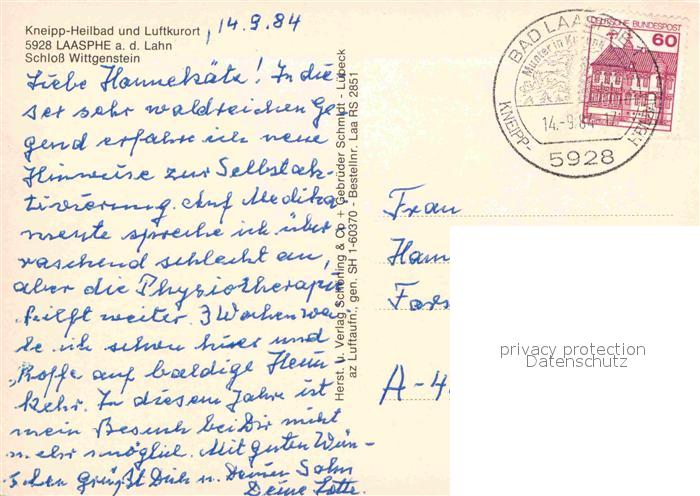 Kneipp-Heilbad und Luftkurort
5928 LAASPHE a. d. Lahn
Schloß Wittgenstein
14.9.84
Liebe Hannekäte! In die-
ser sehr waldreichen Ge-
gend erfahre ich neue
Hinweise zur Selbstak-
tivierung. Auf Medika
mente spreche ich über
raschend schlecht an,
aber die Physiotherapie
hilft weiter. 3 Wochen
ich schon hier und
hoffe auf baldige Heim
kehr. In diesem Jahre ist
mein Besuch bei Dir nicht
mehr möglich. Mit guten Wün-
schen grüßt Dich u. Deinen Sohn
Deine Lotte.
Herst. u. Verlag Schöning & Co + Gebrüder Schmidt - Lübeck
az Luftaufn., gen. SH 1-60370 - Bestellnr. Laa RS 2851
DEUTSCHE BUNDESPOST
60
BAD LAASPHE
KNEIPP-
HEILBAD
14.-9.84-17
5928
Frau
A-4
privacy protection
Datenschutz